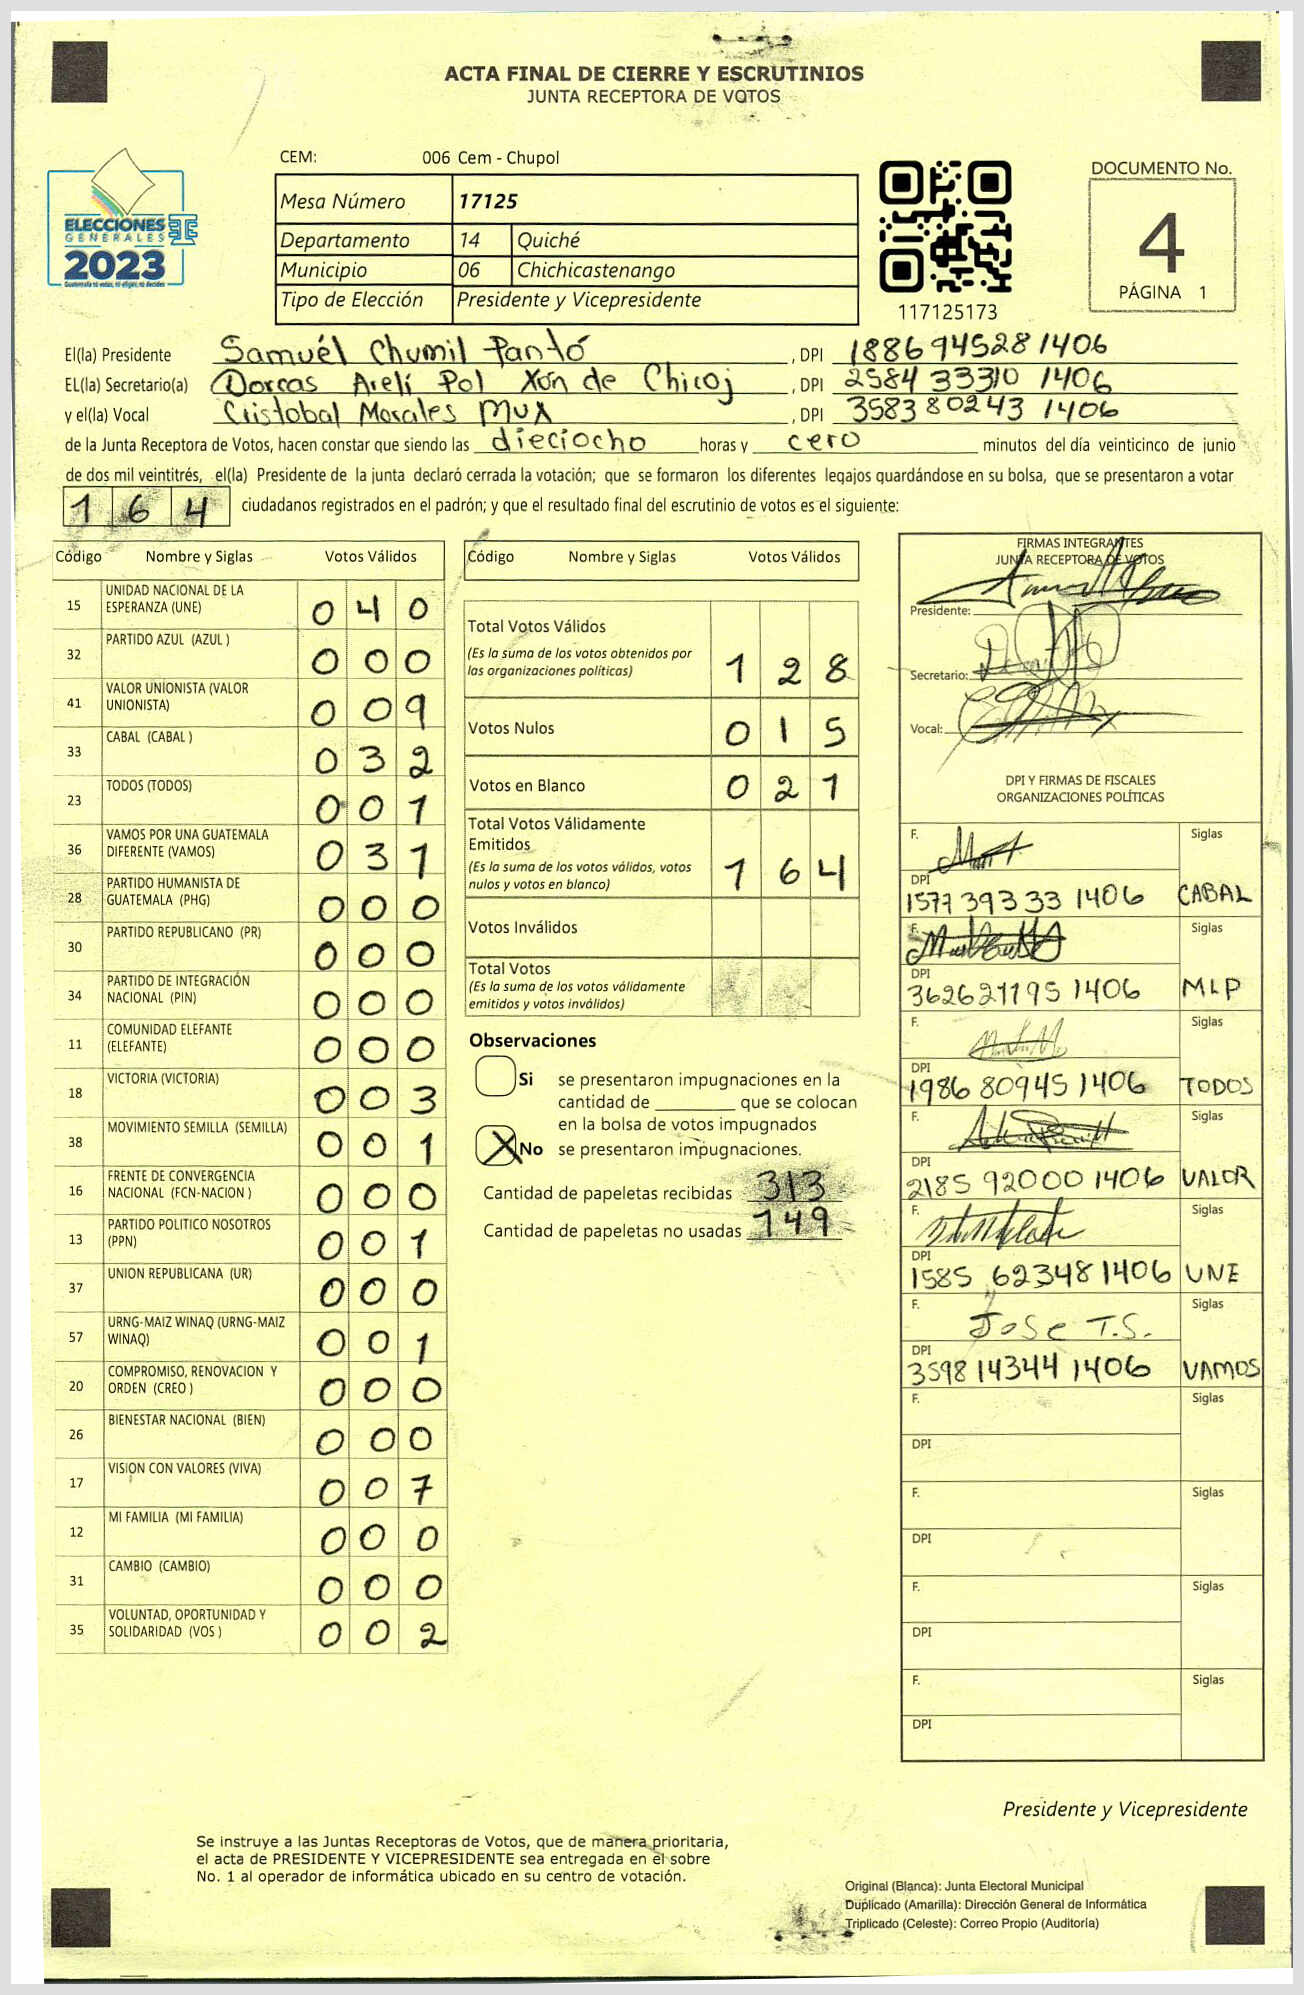 ACTA FINAL DE CIERRE Y ESCRUTINIOS
JUNTA RECEPTORA DE VOTOS
ELECCIONES
GENERALES
2023
CEM: 006 Cem - Chupol
Mesa Número 17125
Departamento 14 Quiché
Municipio 06 Chichicastenango
Tipo de Elección Presidente y Vicepresidente
117125173
DOCUMENTO No.
4
PÁGINA 1
El(la) Presidente Samuél Chumil Pantó , DPI 1886945281406
EL(la) Secretario(a) Dorcas Arelí Pol Xón de Chicoj , DPI 2584 33310 1406
y el(la) Vocal Cristobal Morales Mux , DPI 358380243 1406
de la Junta Receptora de Votos, hacen constar que siendo las dieciocho horas y cero minutos del día veinticinco de junio
de dos mil veintitrés, el(la) Presidente de la junta declaró cerrada la votación; que se formaron los diferentes legajos guardándose en su bolsa, que se presentaron a votar
164 ciudadanos registrados en el padrón; y que el resultado final del escrutinio de votos es el siguiente:
Código Nombre y Siglas Votos Válidos
15 UNIDAD NACIONAL DE LA ESPERANZA (UNE) 040
32 PARTIDO AZUL (AZUL ) 000
41 VALOR UNIONISTA (VALOR UNIONISTA) 009
33 CABAL (CABAL ) 032
23 TODOS (TODOS) 001
36 VAMOS POR UNA GUATEMALA DIFERENTE (VAMOS) 031
28 PARTIDO HUMANISTA DE GUATEMALA (PHG) 000
30 PARTIDO REPUBLICANO (PR) 000
34 PARTIDO DE INTEGRACIÓN NACIONAL (PIN) 000
11 COMUNIDAD ELEFANTE (ELEFANTE) 000
18 VICTORIA (VICTORIA) 003
38 MOVIMIENTO SEMILLA (SEMILLA) 001
16 FRENTE DE CONVERGENCIA NACIONAL (FCN-NACION ) 000
13 PARTIDO POLITICO NOSOTROS (PPN) 001
37 UNION REPUBLICANA (UR) 000
57 URNG-MAIZ WINAQ (URNG-MAIZ WINAQ) 001
20 COMPROMISO, RENOVACION Y ORDEN (CREO ) 000
26 BIENESTAR NACIONAL (BIEN) 000
17 VISION CON VALORES (VIVA) 007
12 MI FAMILIA (MI FAMILIA) 000
31 CAMBIO (CAMBIO) 000
35 VOLUNTAD, OPORTUNIDAD Y SOLIDARIDAD (VOS ) 002
Código Nombre y Siglas Votos Válidos
Total Votos Válidos
(Es la suma de los votos obtenidos por
las organizaciones políticas) 128
Votos Nulos 015
Votos en Blanco 021
Total Votos Válidamente
Emitidos
(Es la suma de los votos válidos, votos
nulos y votos en blanco) 164
Votos Inválidos
Total Votos
(Es la suma de los votos válidamente
emitidos y votos inválidos)
Observaciones
Si se presentaron impugnaciones en la
cantidad de ________ que se colocan
en la bolsa de votos impugnados
X No se presentaron impugnaciones.
Cantidad de papeletas recibidas 313
Cantidad de papeletas no usadas 149
FIRMAS INTEGRANTES
JUNTA RECEPTORA DE VOTOS
Presidente:
Secretario:
Vocal:
DPI Y FIRMAS DE FISCALES
ORGANIZACIONES POLÍTICAS
F. Siglas
DPI
1577 39333 1406 CABAL
F. Siglas
DPI
362621195 1406 MLP
F. Siglas
DPI
1986 80945 1406 TODOS
F. Siglas
DPI
2185 92000 1406 VALOR
F. Siglas
DPI
1585 62348 1406 UNE
F. Jose T.S. Siglas
DPI
3598 14344 1406 VAMOS
F. Siglas
DPI
F. Siglas
DPI
F. Siglas
DPI
F. Siglas
DPI
Presidente y Vicepresidente
Se instruye a las Juntas Receptoras de Votos, que de manera prioritaria,
el acta de PRESIDENTE Y VICEPRESIDENTE sea entregada en el sobre
No. 1 al operador de informática ubicado en su centro de votación.
Original (Blanca): Junta Electoral Municipal
Duplicado (Amarilla): Dirección General de Informática
Triplicado (Celeste): Correo Propio (Auditoría)